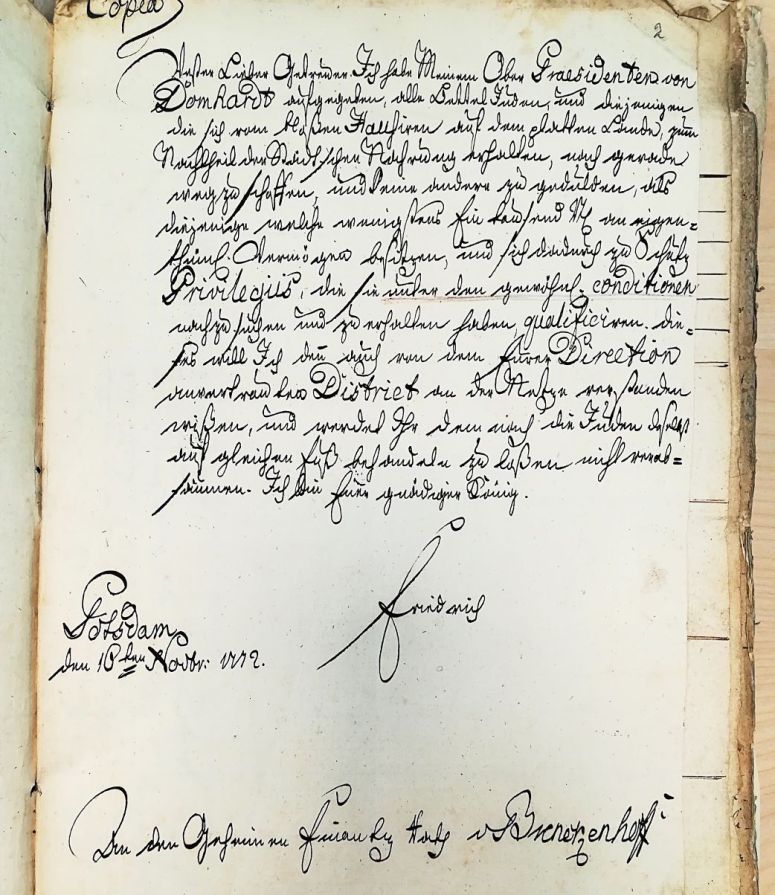 Copia
2
Vester Lieber Getreüer. Ich habe Meinem Ober Praesidenten von
Domhardt aufgegeben, alle Bettel Juden, und diejenigen
die sich vom bloßen Hausiren auf dem platten Lande, zum
Nachtheil der Städtschen Nahrung erhalten, nach gerade
weg zu schaffen, und keine andere zu gedulden, als
diejenige welche wenigstens Ein tausend Rt an eigen=
thüml. Vermögen besitzen, und sich dadurch zu Schutz
Privilegiis, die sie unter den gewöhnl. conditionen
nachzusuchen und zu erhalten haben, qualificiren. die=
ses will Ich den auch von dem Eurer Direction
anvertrauten District an der Netze verstanden
wißen, und werdet Ihr dem nach die Juden daselbst
auf gleichen Fuß behandeln zu laßen nicht verab=
säumen. Ich bin Euer gnädiger König.
Friedrich
Potsdam
den 16ten Novbr: 1772.
An den Geheimen Finantz Rath v Brenckenhoff